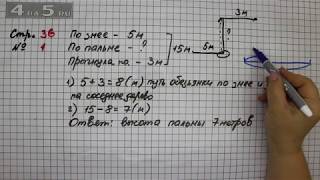 4 а 5.ru
Стр. 36
№ 1
По знее - 5м
По пальне - ?
Прогнула на - 3м
15м
3м
?
5м
1) 5+3=8(м) путь обезьянки по знее и
на соседнее дерево
2) 15-8=7(м)
Ответ: высота пальны 7 метров